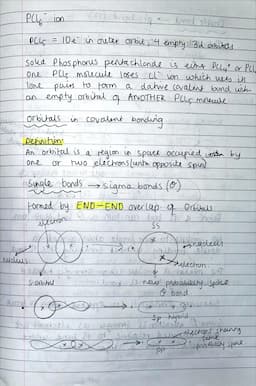 PCl6⁻ ion
PCl5 = 10e⁻ in outer orbit, 4 empty 3d orbitals
solid Phosphorus pentachloride is either PCl4⁺ or PCl
one PCl5 molecule loses Cl⁻ ion which uses its
lone pairs to form a dative covalent bond with
an empty orbital of ANOTHER PCl5 molecule
orbitals in covalent bonding
Definition:
An orbital is a region in space occupied by
one or two electrons (with opposite spin)
Single bonds → sigma bonds (σ)
Formed by END-END overlap of orbitals
electron
SS
nucleus
nucleus
electron
S orbital
new probability space
σ bond
Sp hybrid
electrons sharing
same
probability space
PP